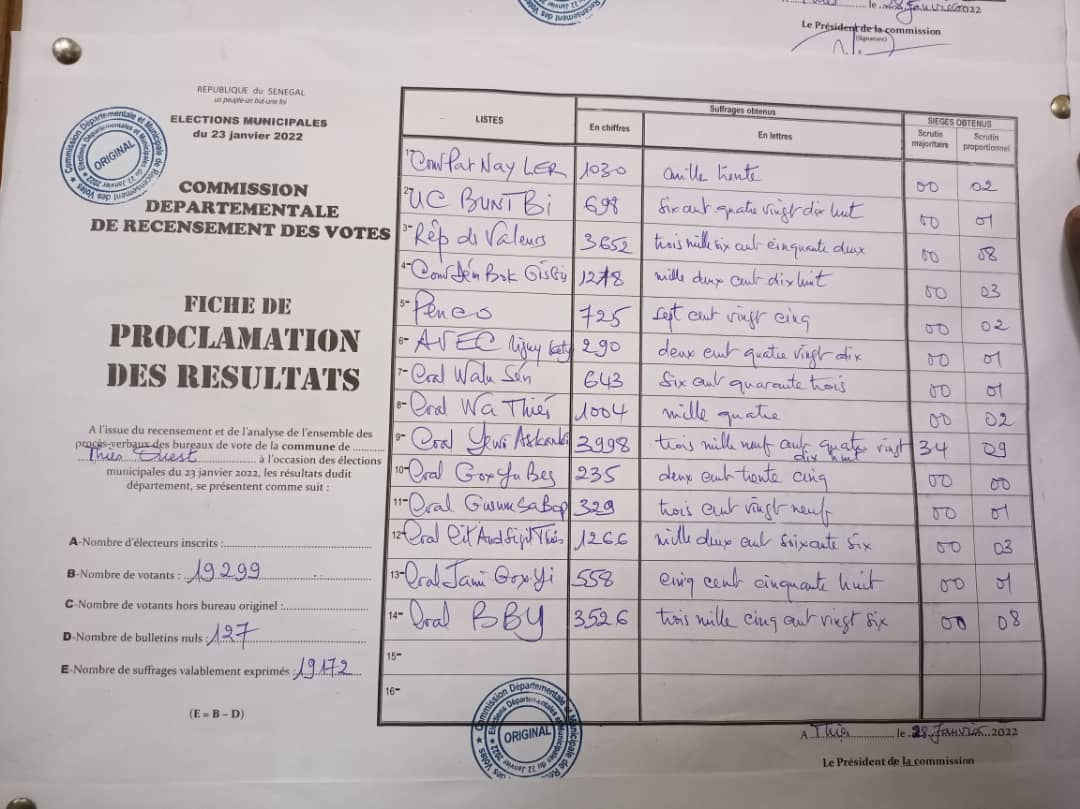 le 28 Janvier 2022
Le Président de la commission
(Signature)
REPUBLIQUE du SENEGAL
un peuple-un but-une foi
ELECTIONS MUNICIPALES
du 23 janvier 2022
Commission Départementale et Municipale de Recensement des Votes
ORIGINAL
COMMISSION
DEPARTEMENTALE
DE RECENSEMENT DES VOTES
FICHE DE
PROCLAMATION
DES RESULTATS
A l'issue du recensement et de l'analyse de l'ensemble des
procès-verbaux des bureaux de vote de la commune de
Thiès Ouest à l'occasion des élections
municipales du 23 janvier 2022, les résultats dudit
département, se présentent comme suit :
A-Nombre d'électeurs inscrits :
B-Nombre de votants : 19299
C-Nombre de votants hors bureau originel :
D-Nombre de bulletins nuls : 127
E-Nombre de suffrages valablement exprimés : 19172
(E = B – D)
LISTES Suffrages obtenus SIEGES OBTENUS
En chiffres En lettres Scrutin majoritaire Scrutin proportionnel
1- Conv Par Nay LER 1030 mille trente 00 02
2- UC BUNT Bi 698 six cent quatre vingt dix huit 00 01
3- Rép des Valeurs 3652 trois mille six cent cinquante deux 00 08
4- Conv Dém Bok GisGis 1218 mille deux cent dix huit 00 03
5- Penco 725 sept cent vingt cinq 00 02
6- AVEC 290 deux cent quatre vingt dix 00 01
7- Coal Walu Sén 643 six cent quarante trois 00 01
8- Coal Wa Thiés 1004 mille quatre 00 02
9- Coal Yewi Askanwi 3998 trois mille neuf cent quatre vingt dix huit 34 09
10- Coal Gox Yu Bes 235 deux cent trente cinq 00 00
11- Coal Gueum Sa Bop 329 trois cent vingt neuf 00 01
12- Coal Cit And Sigil Thiés 1266 mille deux cent soixante six 00 03
13- Coal Jami Gox Yi 558 cinq cent cinquante huit 00 01
14- Coal BBY 3526 trois mille cinq cent vingt six 00 08
15-
16-
ORIGINAL
A Thiès le 28 Janvier 2022
Le Président de la commission